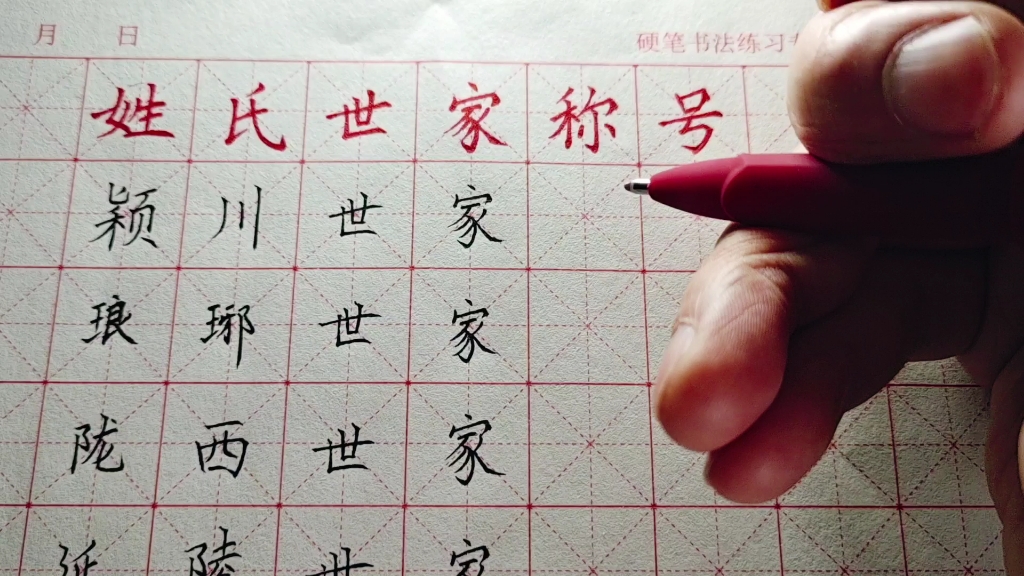 月 日 硬笔书法练习
姓氏世家称号
颖川世家
琅琊世家
陇西世家
延陵世家